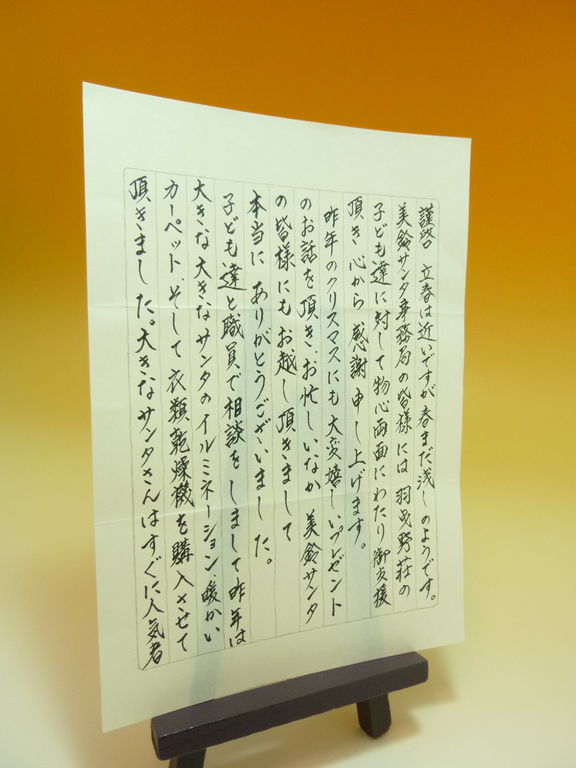 謹啓 立春は近いですが春まだ浅しのようです。
美鈴サンタ事務局の皆様には羽曳野荘の
子ども達に対して物心両面にわたり御支援
頂き心から感謝申し上げます。
昨年のクリスマスにも大変嬉しいプレゼント
のお話を頂き、お忙しいなか美鈴サンタ
の皆様にもお越し頂きまして
本当にありがとうございました。
子ども達と職員で相談をしまして昨年は
大きな大きなサンタのイルミネーション、暖かい
カーペット、そして衣類乾燥機を購入させて
頂きました。大きなサンタさんはすぐに人気者